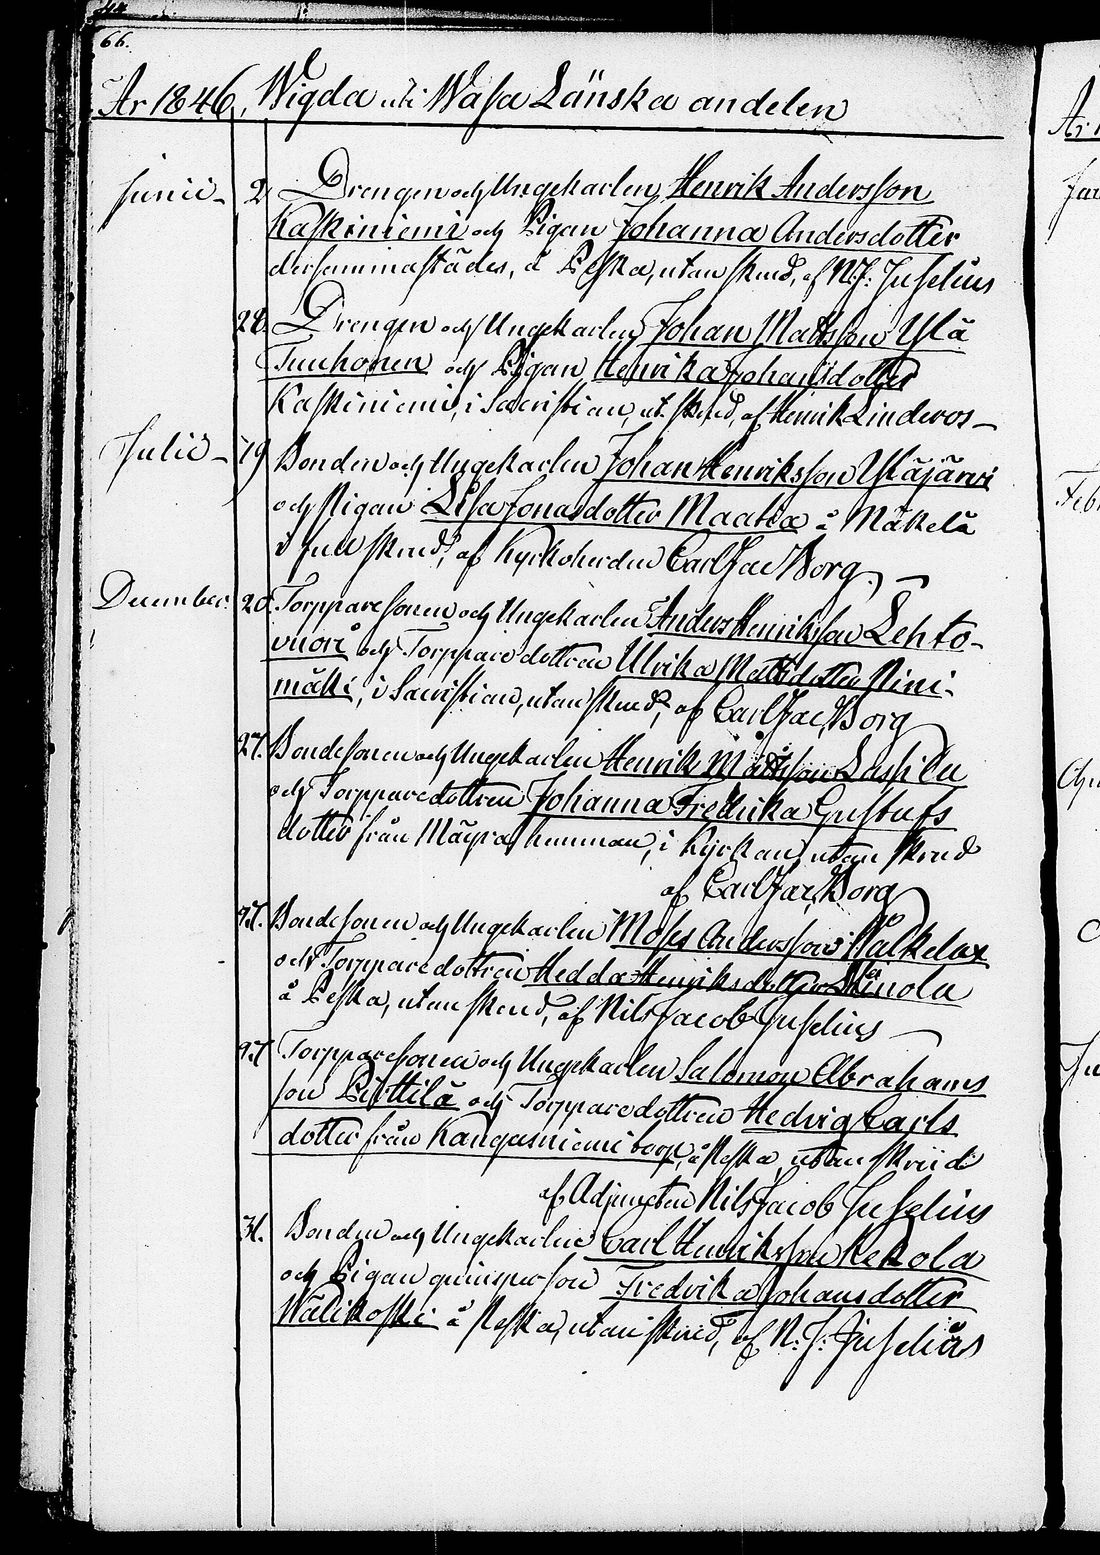 66.
År 1846, Wigda uti Wasa Länska andelen
Junii 2. Drengen och Ungekarlen Henrik Andersson
Kaskiniemi och Pigan Johanna Andersdotter
dersammastädes, å Peska, utan skrud, af N. J. Juselius
28. Drengen och Ungekarlen Johan Mattsson Ylä
Tunhonen och Pigan Henrika Johansdotter
Kaskiniemi, i Sacristian, ut. skrud, af Henrik Linderoos
Julii 19 Bonden och Ungekarlen Johan Henriksson Yläjärvi
och Pigan Lisa Jonasdotter Maatta å Mäkelä
i full skrud, af Kyrkoherden Carl Jac Borg
December 20. Torpparesonen och Ungekarlen Anders Henriksson Lehto-
vuori och Torpparedottren Ulrika Mattsdotter Nini-
mäki, i Sacristian, utan skrud, af Carl Jac Borg
27. Bondesonen och Ungekarlen Henrik Mattsson Lassila
och Torpparedottren Johanna Fredrika Gustafs
dotter från Mäyrä hemman, i Kyrkan, utan skrud
af Carl Jac Borg
27. Bondesonen och Ungekarlen Moses Andersson
och Torpparedottren Hedda Henriksdotter
å Peska, utan skrud, af Nils Jacob Juselius
27. Torpparesonen och Ungekarlen Salomon Abrahams
son Pirttilä och Torpparedottren Hedvig Carls
dotter från Kangasniemi torp, å Peska, utan skrud
af Adjuncten Nils Jacob Juselius
31. Bonden och Ungekarlen Carl Henriksson Kekola
och Pigan Fredrika Johansdotter
Wälikoski å Peska, utan skrud, af N. J. Juselius